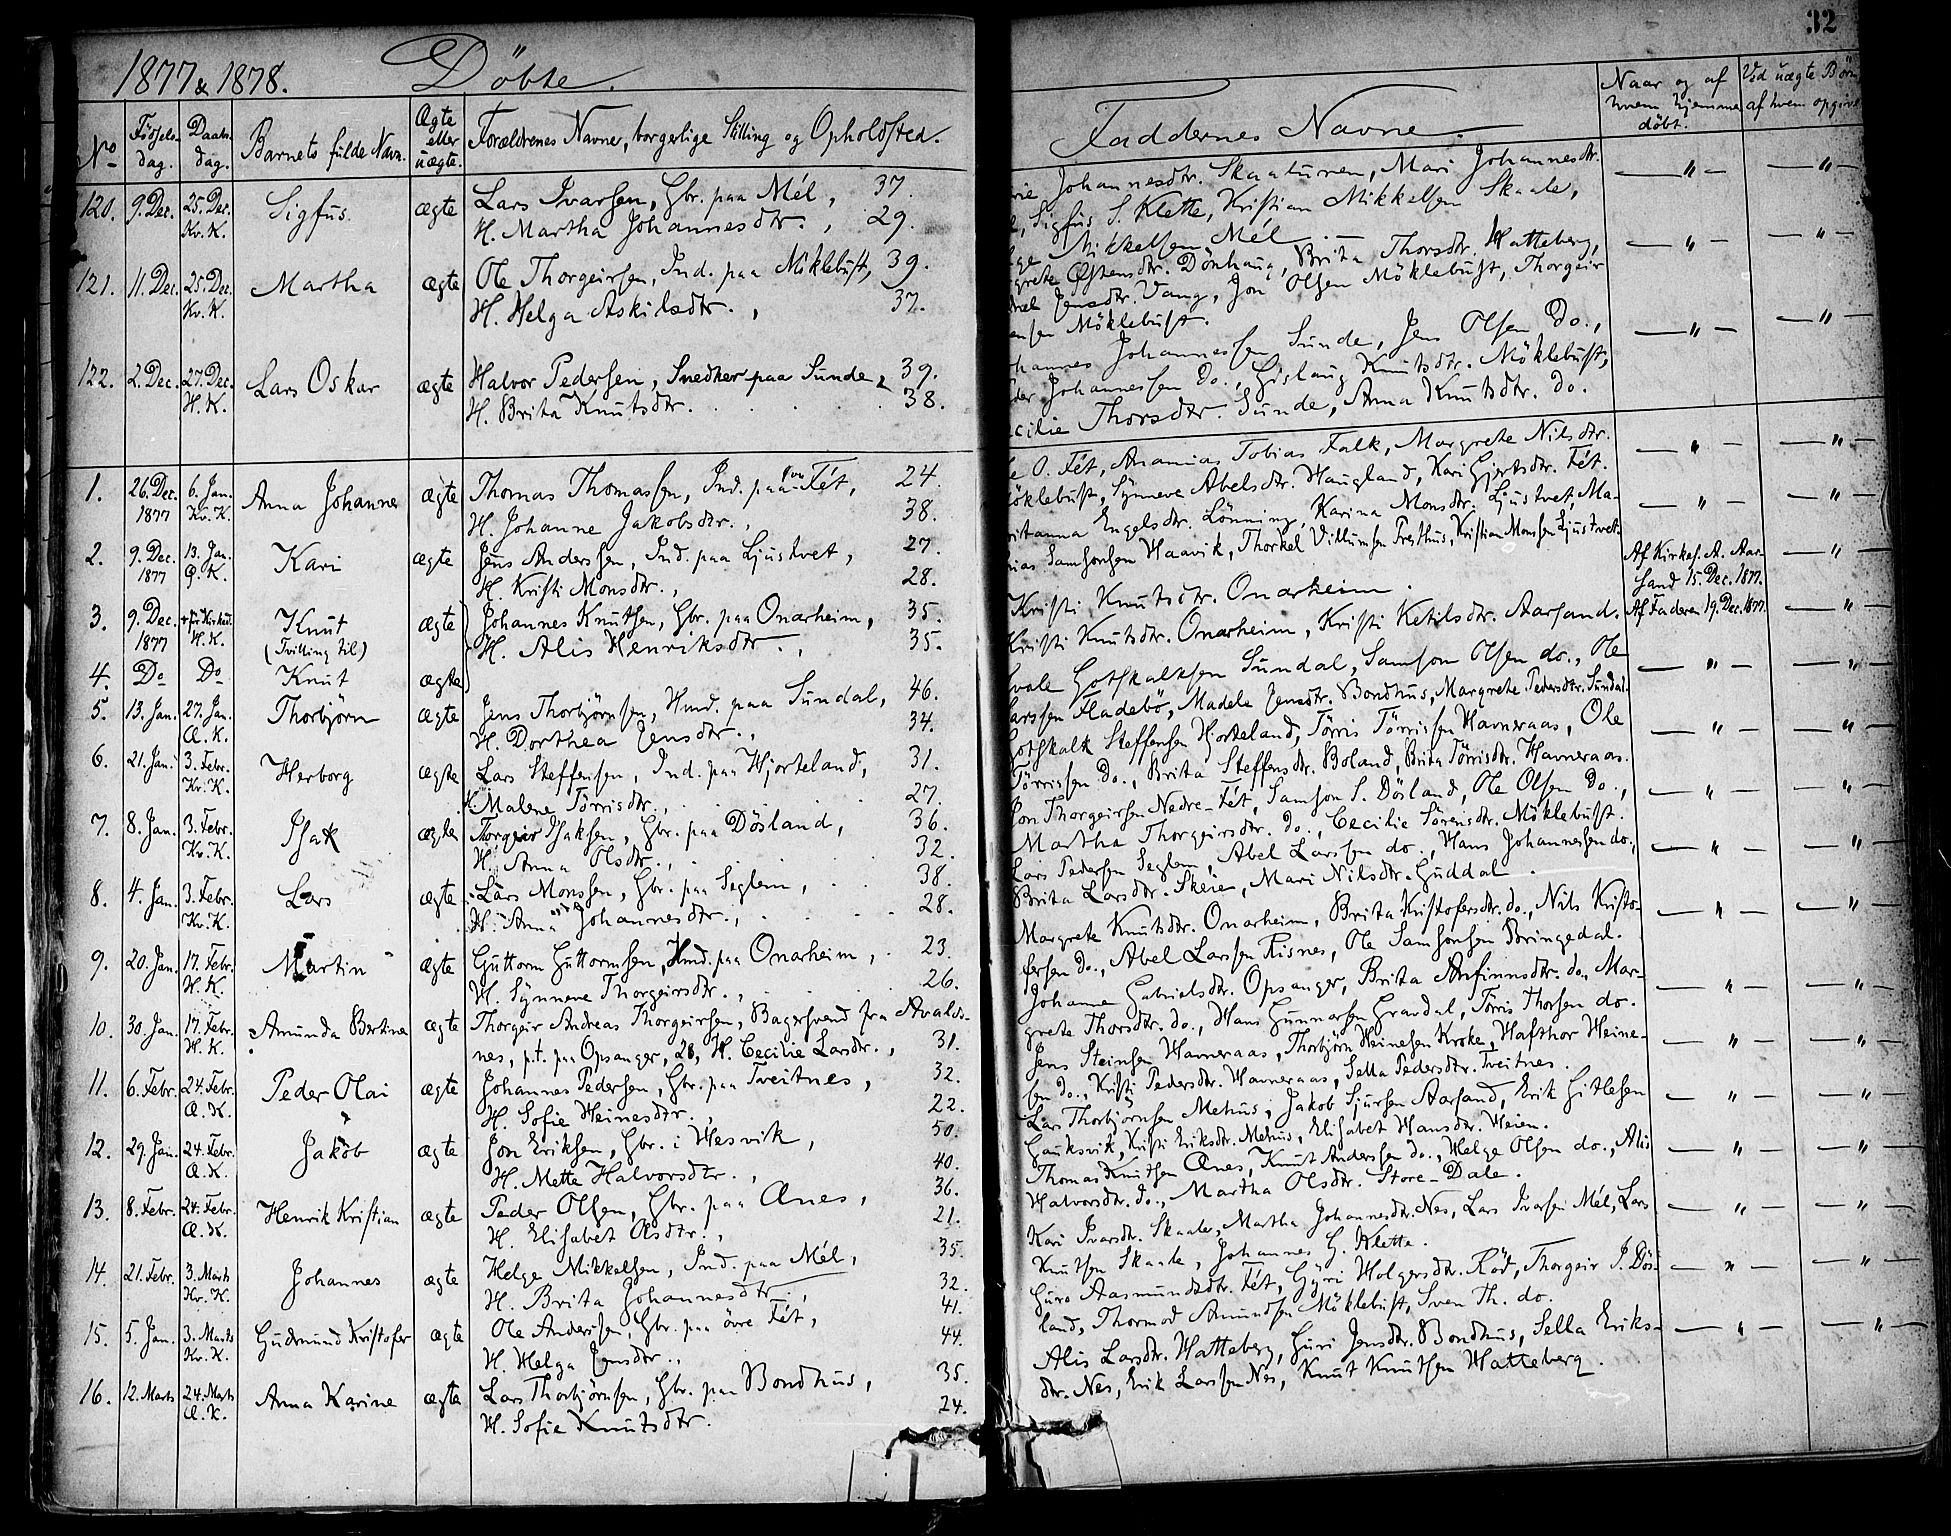 32
1877 & 1878. Döbte.
No
Födsels-
dag.
Daabs-
dag.
Barnets fulde Navn.
Ægte
eller
uægte.
Forældrenes Navne, borgerlige Stilling og Opholdssted.
Faddernes Navne.
Naar og af
hvem hjemme
döbt.
Ved uægte Börn
af hvem opgivet
120. 9. Dec. 25. Dec. Kv. K. Sigfus. ægte
Lars Ivarsen, Gbr. paa Mél, 37.
H. Martha Johannesdtr., 29.
Johannesdtr. Skaaturen, Mari Johannesdtr.
Sigfus S. Klette, Kristian Mikkelsen Skaale,
Mikkelsen Mél
121. 11. Dec. 25. Dec. Kv. K. Martha ægte
Ole Thorgeirsen, Ind. paa Möklebust, 39.
H. Helga Askilsdtr., 37.
Östensdtr. Dönhaug, Brita Thorsdtr. Hatteberg,
Jensdtr. Vang, Jon Olsen Möklebust, Thorgeir
Möklebust.
122. 2. Dec. 27. Dec. H. K. Lars Oskar ægte
Halvor Pedersen, Snedker paa Sunde, 39.
H. Brita Knutsdtr. 38.
Johannessen Sunde, Jens Olsen Do.,
Johannessen Do., Gislaug Knutsdtr. Möklebust,
Thorsdtr. Sunde, Anna Knutsdtr. Do.
1. 26. Dec. 1877 6. Jan. Kv. K. Anna Johanne ægte
Thomas Thomassen, Ind. paa Fét, 24
H. Johanne Jakobsdtr., 38.
O. Fét, Ananias Tobias Falk, Margrete Nilsdtr.
Möklebust, Synneve Abelsdtr. Haugland, Kari Gjertsdtr. Fét.
2. 9. Dec. 1877 13. Jan. Q. K. Kari ægte
Jens Anderssen, Ind. paa Ljustvet, 27.
H. Kristi Monsdtr., 28.
Engelsdtr. Lönning, Karina Monsdtr. Ljustvet, Ma-
Samsonsen Haavik, Thorkel Villumsen Tresthus, Kristian Monsen Ljustvet.
3. 9. Dec. 1877 H. K. Knut (Tvilling til) ægte
Johannes Knutsen, Gbr. paa Onarheim, 35.
H. Alis Henriksdtr., 35.
Kristi Knutsdtr. Onarheim.
Af Kirkes. A. Aar-
sand 15. Dec. 1877.
4. Do Do Knut ægte
Kristi Knutsdtr. Onarheim, Kristi Ketilsdtr. Aarsand.
Af Faderen 19. Dec. 1877.
5. 13. Jan. 27. Jan. Æ. K. Thorbjörn ægte
Jens Thorbjörnsen, Hmd. paa Sundal, 46.
H. Dorthea Jensdtr., 34.
Gotskalksen Sundal, Samson Olsen do., Ole
Larssen Fladebö, Madele Jensdtr. Bondhus, Margrete Pedersdtr. Sundal.
6. 21. Jan. 3. Febr. Kv. K. Herborg ægte
Lars Steffensen, Ind. paa Hjorteland, 31.
Malene Törrisdtr., 27.
Gotskalk Steffensen Hjorteland, Törris Törrissen Havneraas, Ole
Törrissen Do., Brita Steffensdtr. Boland, Brita Törrisdtr. Havneraas.
7. 8. Jan. 3. Febr. Kv. K. Isak ægte
Torgeir Isaksen, Gbr. paa Dösland, 36.
H. Anna Olsdtr., 32.
Jon Thorgeirsen Nedre-Fét, Samson S. Dösland, Ole Olsen Do.,
Martha Thorgeirsdtr. Do., Cecilie Sörensdtr. Möklebust.
8. 4. Jan. 3. Febr. Kv. K. Lars ægte
Lars Monssen, Gbr. paa Seglem, 38.
H. Anna Johannesdtr., 28.
Lars Pedersen Seglem, Abel Larssen do., Hans Johannessen do.,
Brita Larsdtr. Skeien, Mari Nilsdtr. Guddal.
9. 20. Jan. 17. Febr. H. K. Martin ægte
Guttorm Guttormsen, Hmd. paa Onarheim, 23.
H. Synneve Thorgeirsdtr., 26.
Margrete Knutsdtr. Onarheim, Brita Kristofersdtr. do., Nils Kristo-
fersen do., Abel Larssen Risnes, Ole Samsonsen Bringedal.
10. 30. Jan. 17. Febr. H. K. Amunda Bertina ægte
Thorgeir Andreas Thorgeirsen, Bagersvend fra Avalds-
nes, p.t. paa Opsanger, 28, H. Cecilie Larsdtr., 31.
Johanne Gabrielsdtr. Opsanger, Brita Anfinnsdtr. do., Mar-
grete Thorsdtr. do., Hans Gunnarsen Gravdal, Törris Thorsen do.
11. 6. Febr. 24. Febr. Æ. K. Peder Olai ægte
Johannes Pedersen, Gbr. paa Tveitnes, 32.
H. Sofie Heinesdtr., 22.
Jens Steinsen Havneraas, Thorbjörn Heinesen Kroke, Hafthor Heine-
sen do., Kristi Pedersdtr. Havneraas, Sella Pedersdtr. Tveitnes.
12. 29. Jan. 24. Febr. Æ. K. Jakob ægte
Jon Eriksen, Gbr. i Hesvik, 50.
H. Mette Halvorsdtr., 40.
Lars Thorbjörnsen Mehus, Jakob Sjursen Aarsand, Erik Gitlesen
Gauksvik, Kristi Eriksdtr. Mehus, Elisabet Hansdtr. Heien.
13. 8. Febr. 24. Febr. Æ. K. Henrik Kristian ægte
Peder Olsen, Gbr. paa Ænes, 36.
H. Elisabet Olsdtr., 21.
Thomas Knutsen Ænes, Knut Anderssen do., Helge Olsen do., Alis
Halvorsdtr. do., Martha Olsdtr. Store-Dale.
14. 21. Febr. 3. Marts Kv. K. Johannes ægte
Helge Mikkelsen, Ind. paa Mél, 35.
H. Brita Johannesdtr., 32.
Kari Ivarsdtr. Skaale, Martha Johannesdtr. Nes, Lars Ivarsen Mél, Lars
Knutsen Skaale, Johannes G. Klette.
15. 5. Jan. 3. Marts Kv. K. Gudmund Kristofer ægte
Ole Anderssen, Gbr. paa övre Fét, 41.
H. Helga Jensdtr., 44.
Guro Aasmundsdtr. Fét, Gyri Holgersdtr. Röd, Thorgeir I. Dös-
land, Thormod Amundsen Möklebust, Sven Th. do.
16. 12. Marts 24. Marts Æ. K. Anna Karine ægte
Lars Thorbjörnsen, Gbr. paa Bondhus, 35.
H. Sofie Knutsdtr. 24.
Alis Larsdtr. Hatteberg, Guri Jensdtr. Bondhus, Sella Eriks-
dtr. Nes, Erik Larssen Nes, Knut Knutsen Hatteberg.